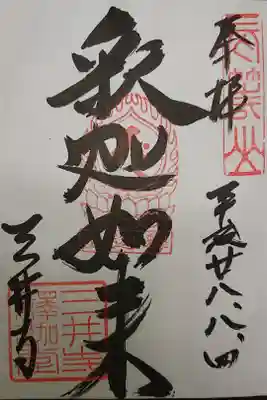 長等山
奉拝
平成廿八、八、四
釈迦如来
三井寺
三井寺